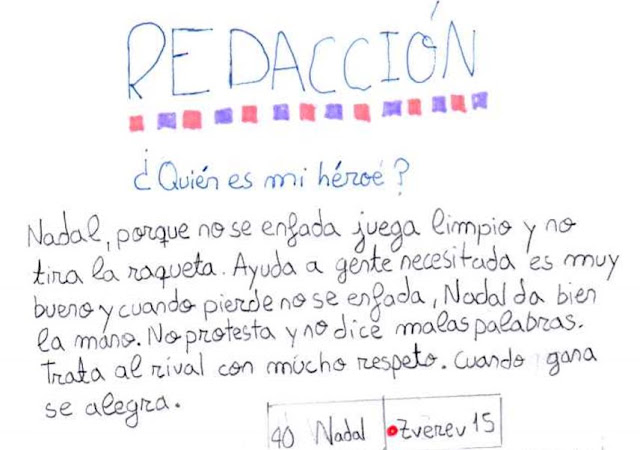 REDACCIÓN
¿Quién es mi héroe?
Nadal, porque no se enfada juega limpio y no
tira la raqueta. Ayuda a gente necesitada es muy
bueno y cuando pierde no se enfada, Nadal da bien
la mano. No protesta y no dice malas palabras.
Trata al rival con mucho respeto. Cuando gana
se alegra.
40 Nadal Zverev 15